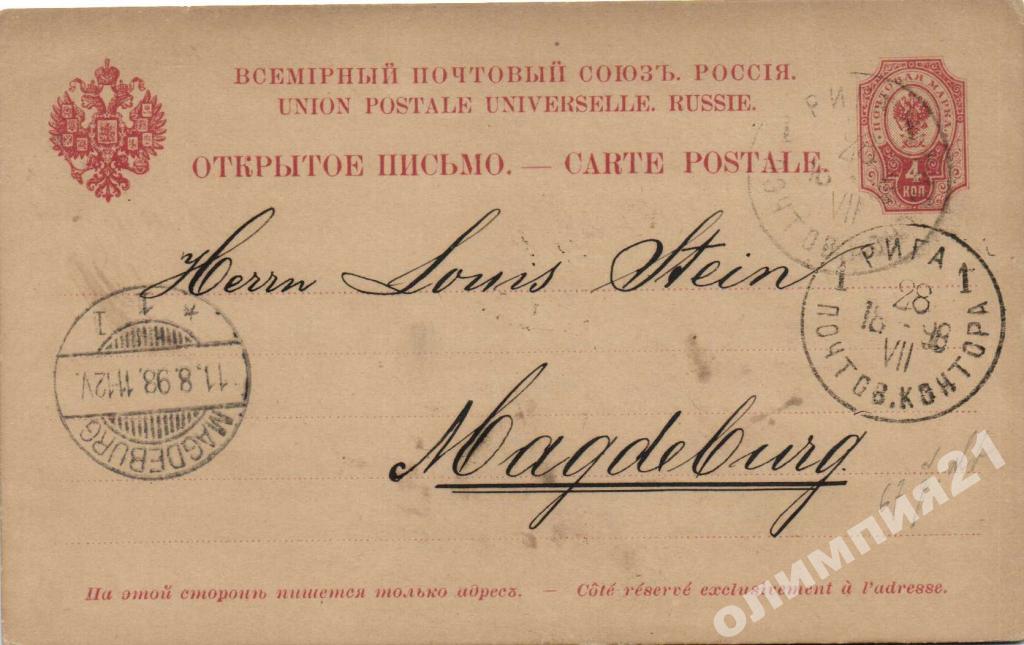 ВСЕМІРНЫЙ ПОЧТОВЫЙ СОЮЗЪ. РОССІЯ.
UNION POSTALE UNIVERSELLE. RUSSIE.
ОТКРЫТОЕ ПИСЬМО. — CARTE POSTALE.
ПОЧТОВАЯ МАРКА
4
КОП
Herrn Louis Stein
1 РИГА 1
28
18 - 98
VII
ПОЧТОВ. КОНТОРА
* 1 1
11.8.98. 11-12V.
MAGDEBURG
Magdeburg.
На этой сторонѣ пишется только адресъ. — Côté réservé exclusivement à l'adresse.
олимпия21